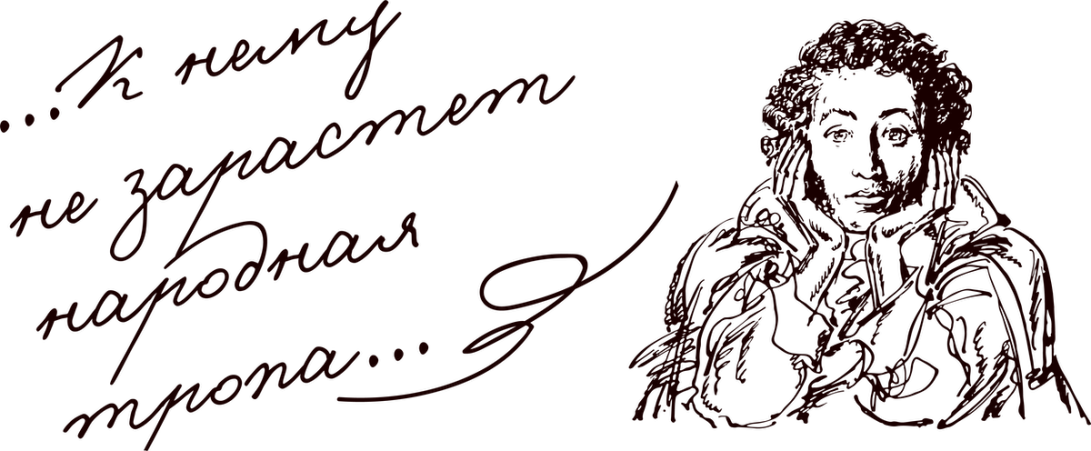 ...К нему
не зарастет
народная
тропа...